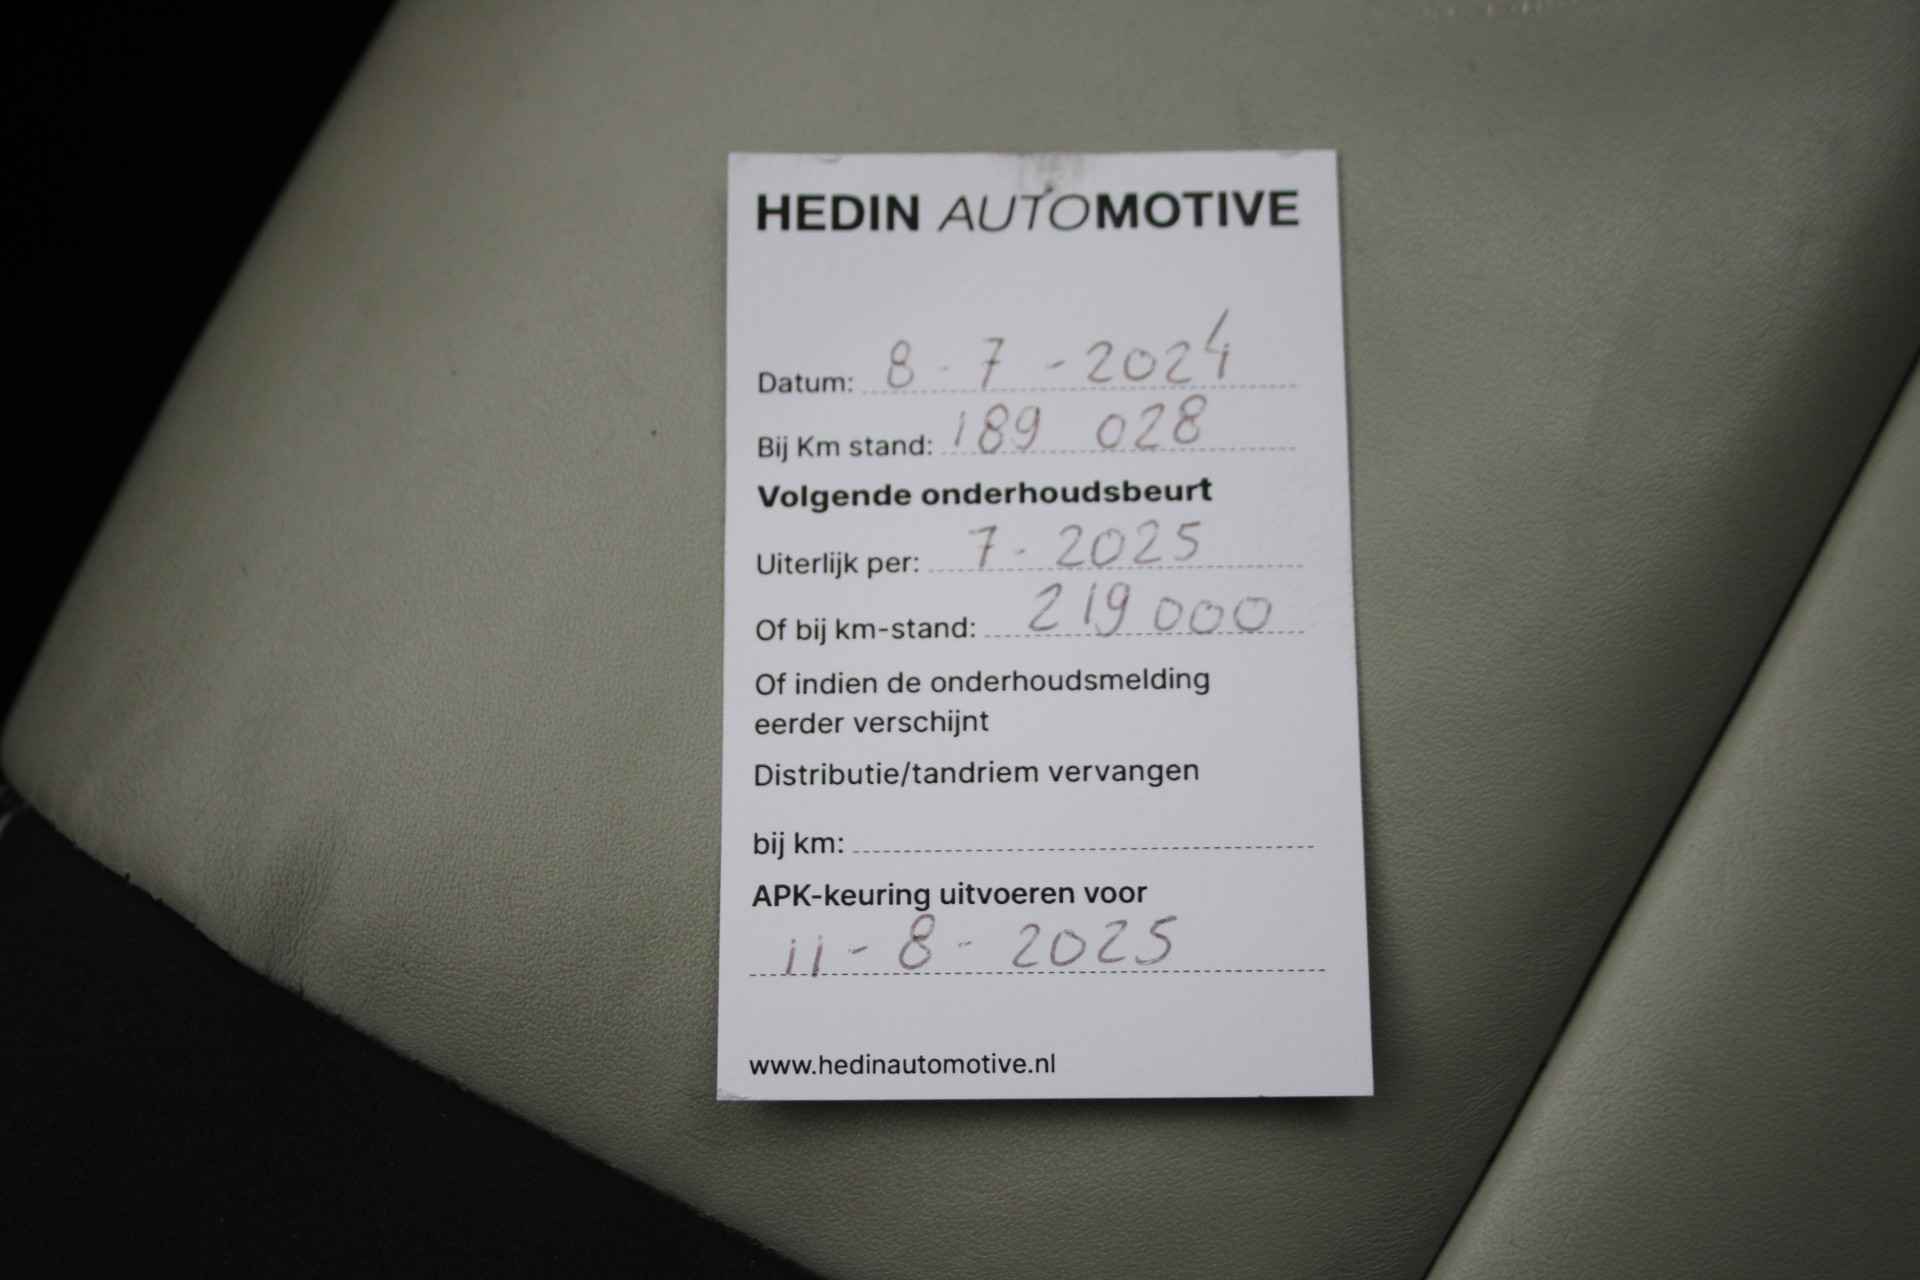 HEDIN AUTOMOTIVE
Datum: 8 - 7 - 2024
Bij Km stand: 189 028
Volgende onderhoudsbeurt
Uiterlijk per: 7 - 2025
Of bij km-stand: 219 000
Of indien de onderhoudsmelding
eerder verschijnt
Distributie/tandriem vervangen
bij km:
APK-keuring uitvoeren voor
11 - 8 - 2025
www.hedinautomotive.nl